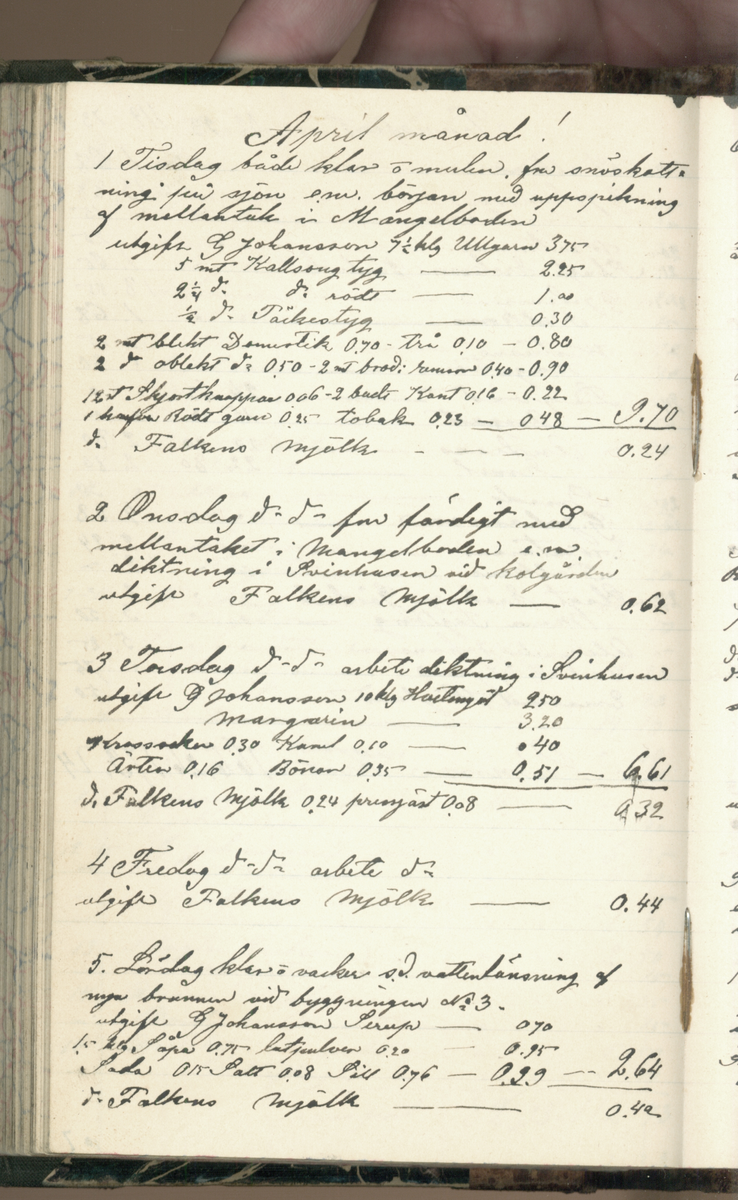 April månad!
1 Tisdag både klar o mulen. fm snöskott=
ning på sjön em. början med uppspikning
af mellantak i Mangelboden
utgift G Johansson 7½ klg Ullgarn 375
5 mt Kallsong tyg — 2.25
2¼ d: d: rödt — 1.00
½ d: Täckestyg — 0.30
2 mt blekt Domestik 0.70 - trå 0.10 - 0.80
2 d oblekt d: 0.50 - 2 mt brod: 040 - 0.90
12 st Skjortknappar 006 - 2 Kant 0.16 - 0.22
1 Rödt garn 0.25 tobak 0.23 — 048 — 9.70
d: Falkens Mjölk - — — 0.24
2 Onsdag d-d- fm färdigt med
mellantaket i Mangelboden e.m
diktning i Svinhusen vid kolgården
utgift Falkens Mjölk — 0.62
3 Torsdag d-d- arbete diktning i Svinhusen
utgift G Johansson 10 klg Hvetemjöl 250
Margarin — 3.20
Krossocker 0.30 Kanel 0.10 — 040
Ärter 0.16 Bönor 0.35 — 0.51 — 6.61
d: Falkens Mjölk 0.24 pressjäst 0.08 — 0.32
4 Fredag d-d- arbete d:
utgift Falkens Mjölk — 0.44
5. Lördag klar o vacker s.d. vattenlänsning af
nya brunnen vid byggningen No 3.
utgift G Johansson Sirup — 070
1.5 klg Såpa 0.75 lutpulver 0.20 — 0.95
Soda 015 Salt 0.08 Sill 0.76 — 0.99 — 2.64
d: Falkens Mjölk — 0.42